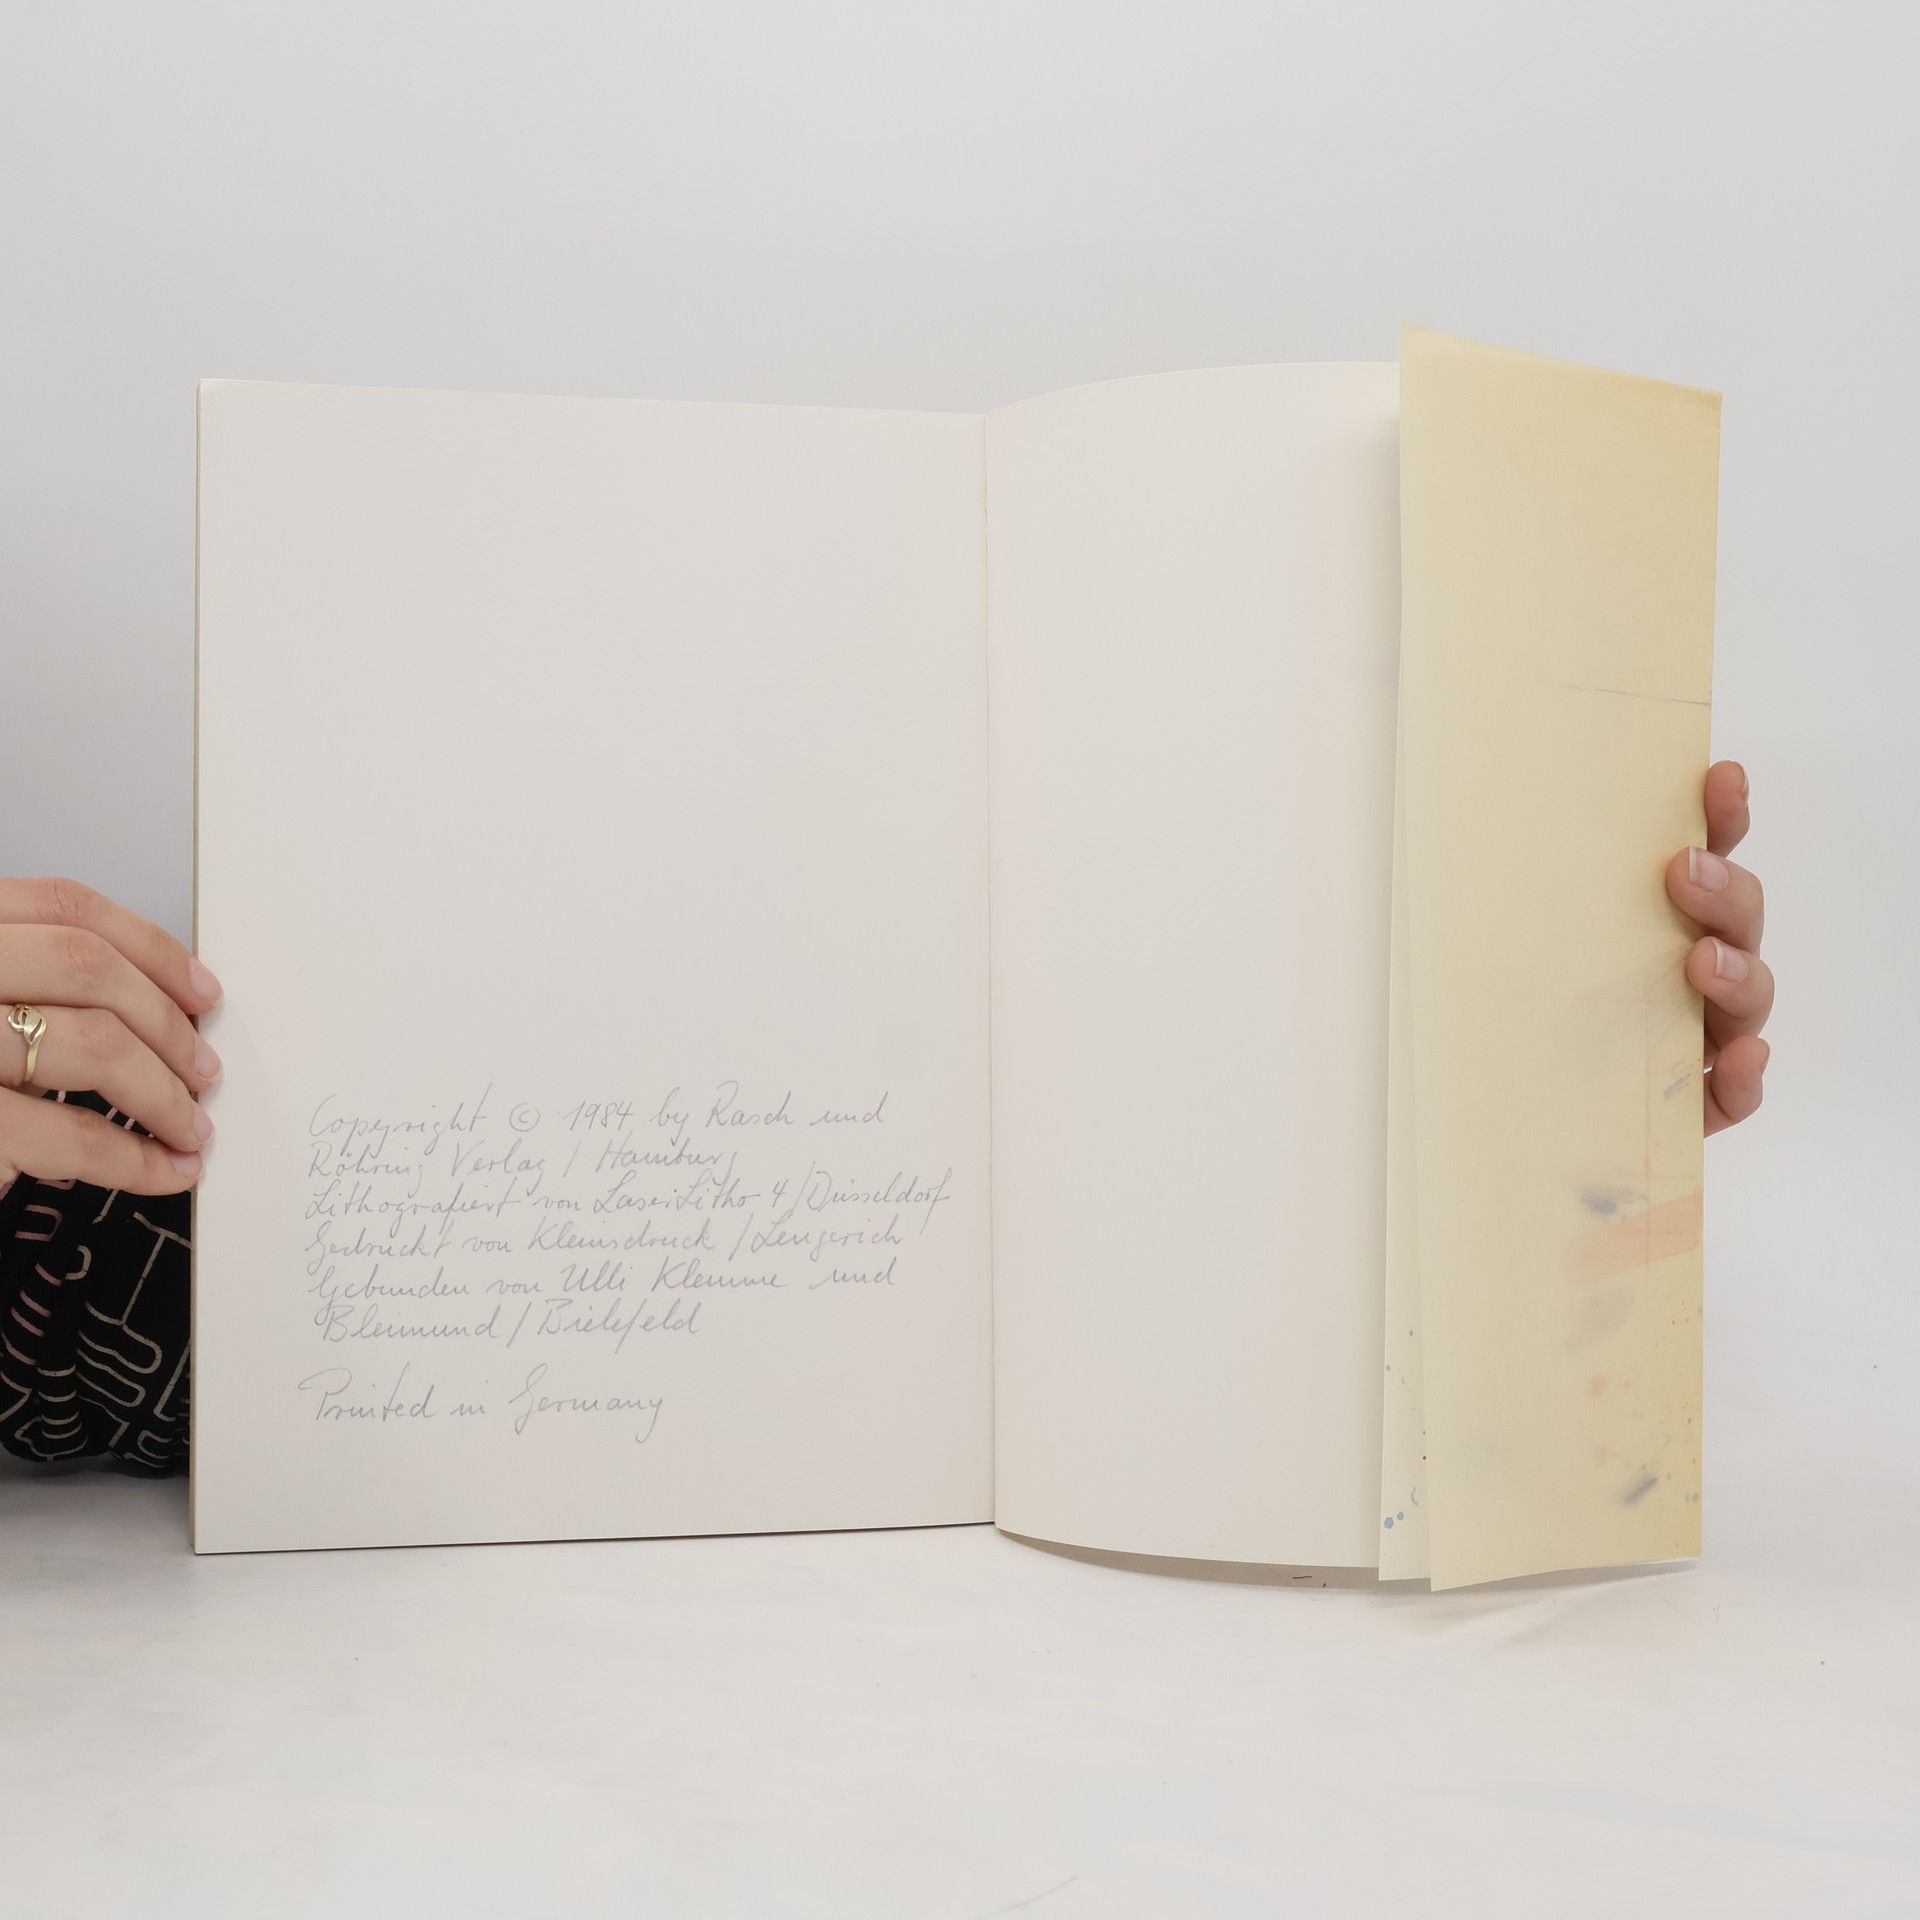 Copyright © 1984 by Rasch und
Röhring Verlag / Hamburg
Lithografiert von LaserLitho 4 / Düsseldorf
Gedruckt von Kleinsdruck / Lengerich
Gebunden von Ulli Klemme und
Bleimund / Bielefeld
Printed in Germany